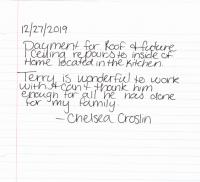 12/27/2019
Payment for Roof & future
ceiling repairs to inside of
Home located in the kitchen.
Terry is wonderful to work
with & can't thank him
enough for all he has done
for my family.
- Chelsea Croslin